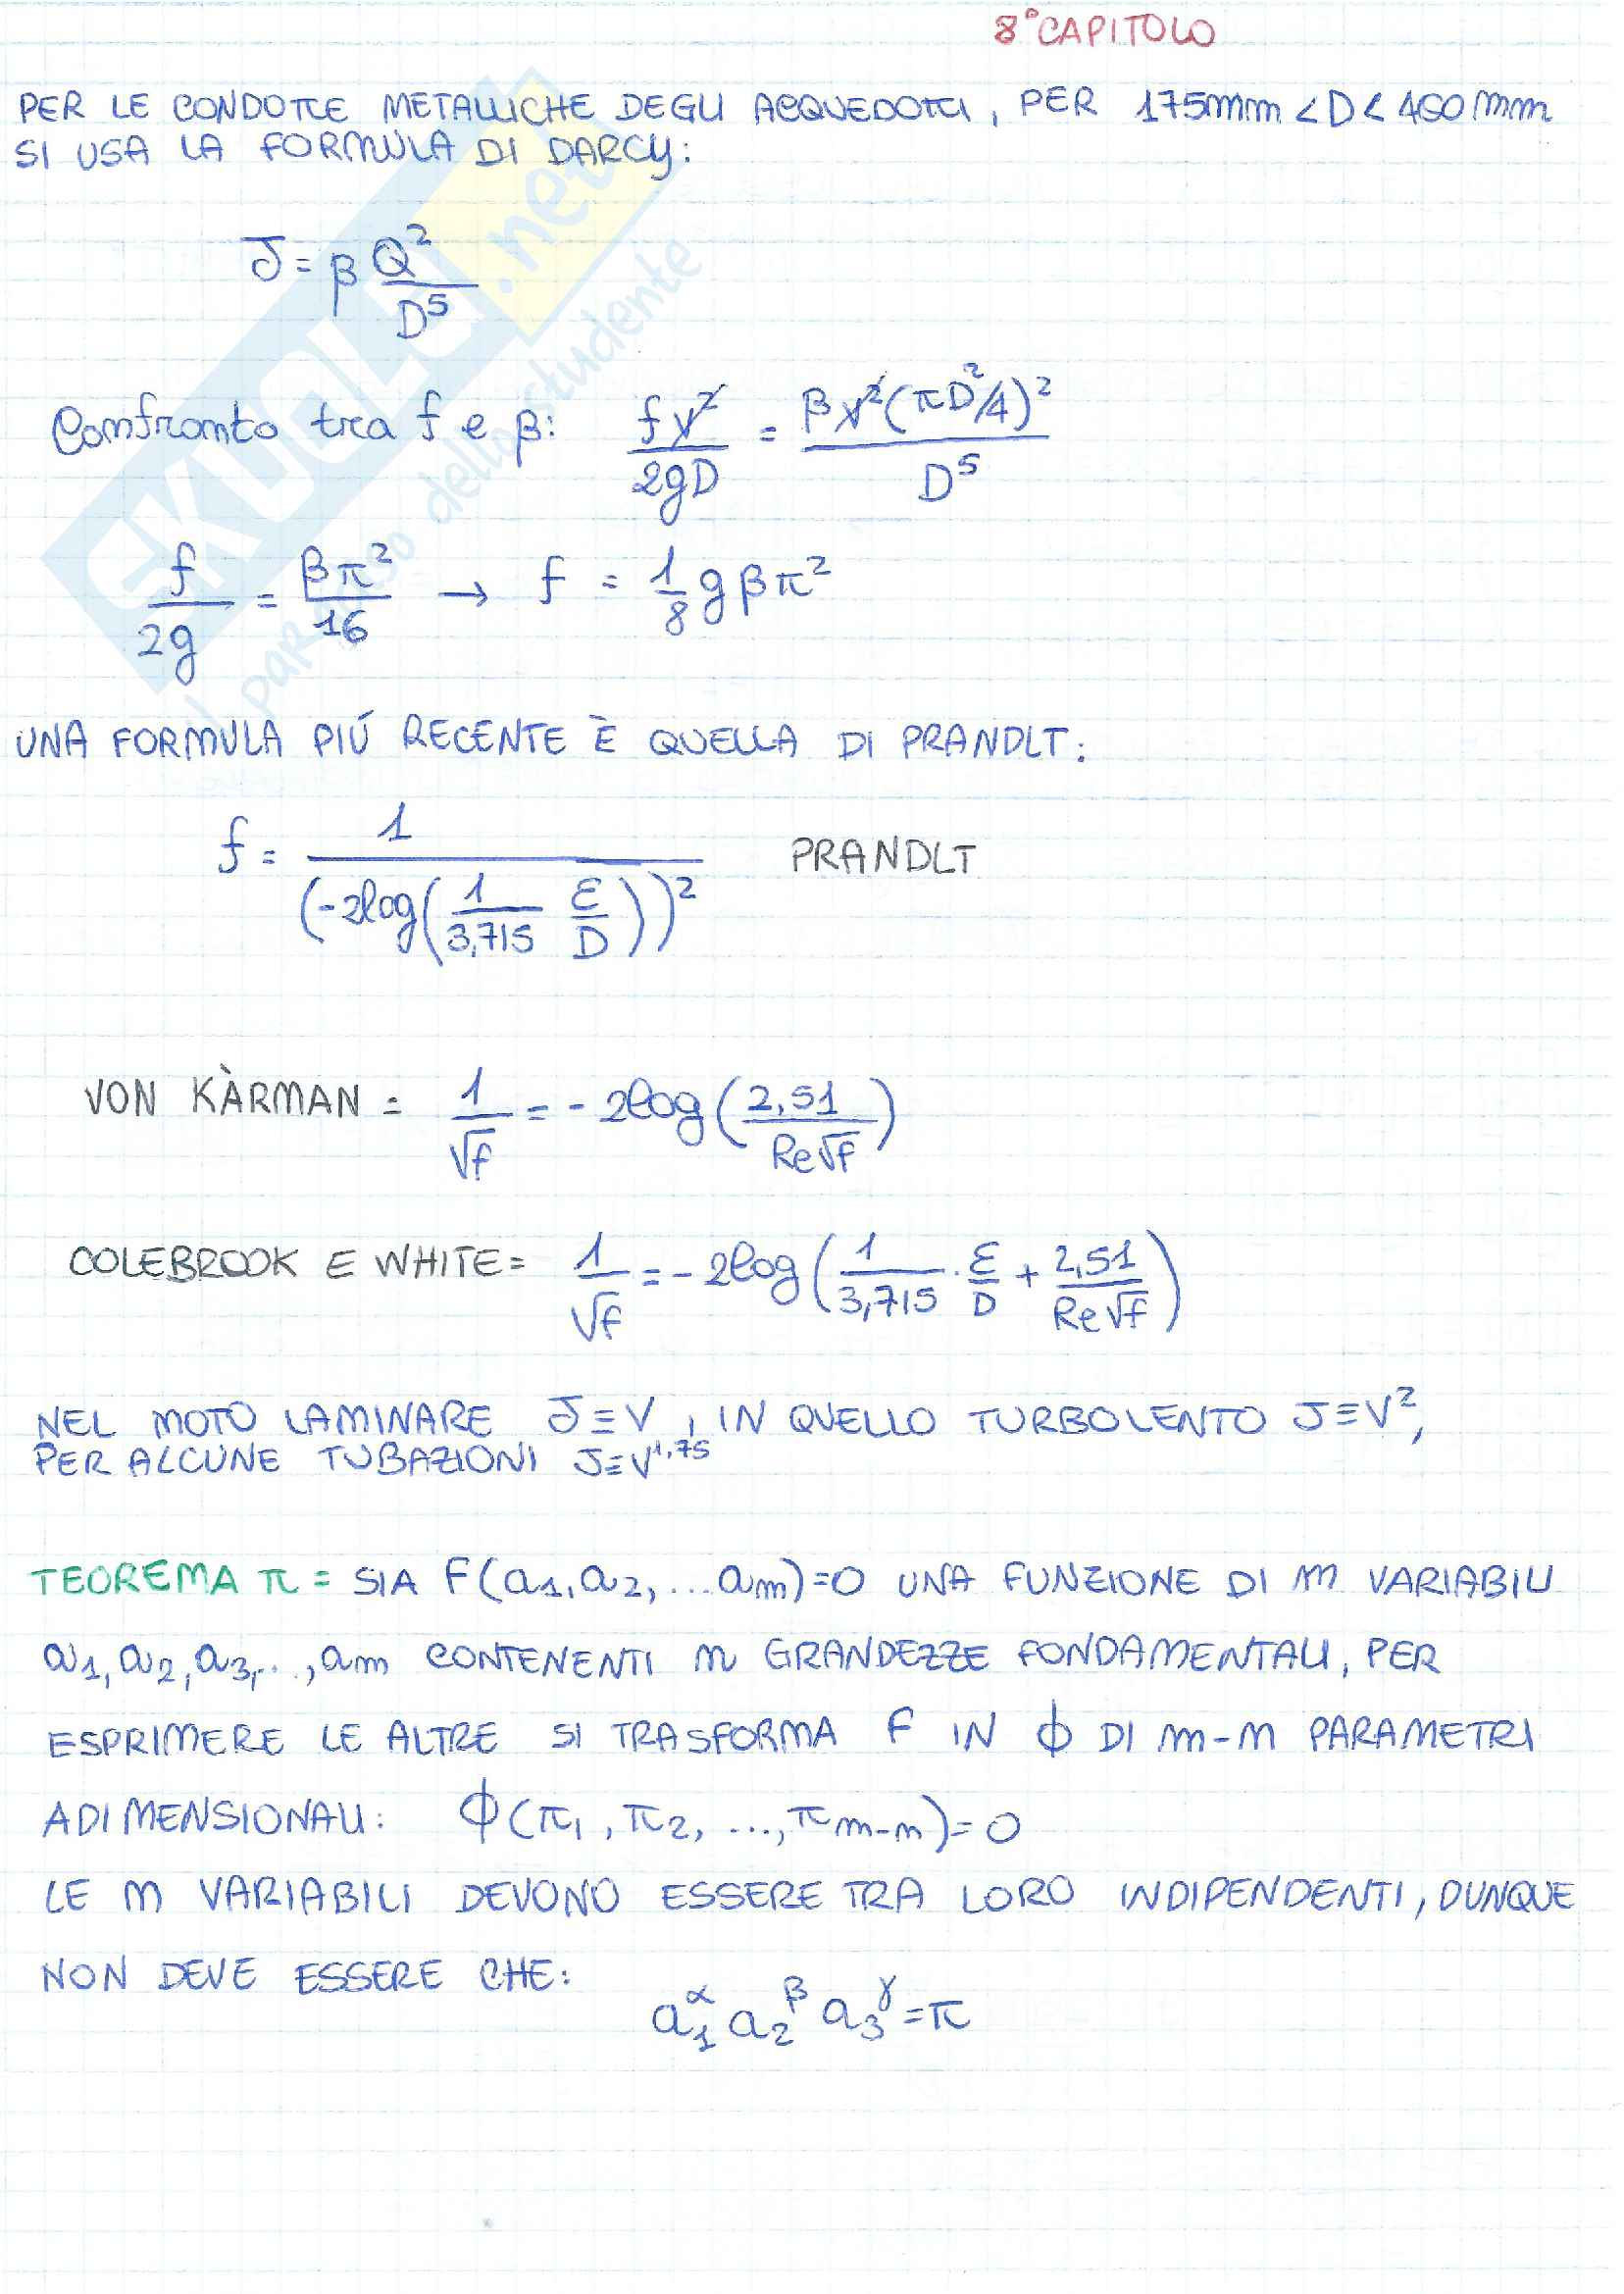 8° CAPITOLO
PER LE CONDOTTE METALLICHE DEGLI ACQUEDOTTI, PER 175mm < D < 460mm
SI USA LA FORMULA DI DARCY:
J = β Q²/D⁵
Confronto tra f e β: fv²/2gD = βv²(πD²/4)²/D⁵
f/2g = βπ²/16 → f = 1/8 gβπ²
UNA FORMULA PIÚ RECENTE È QUELLA DI PRANDLT:
f = 1/(-2log(1/3,715 ε/D))² PRANDLT
VON KÀRMAN = 1/√f = -2log(2,51/Re√f)
COLEBROOK E WHITE = 1/√f = -2log(1/3,715 · ε/D + 2,51/Re√f)
NEL MOTO LAMINARE J≡V, IN QUELLO TURBOLENTO J≡V²,
PER ALCUNE TUBAZIONI J≡V^1,75
TEOREMA π = SIA F(a₁,a₂,...am)=0 UNA FUNZIONE DI m VARIABILI
a₁,a₂,a₃,..,am CONTENENTI n GRANDEZZE FONDAMENTALI, PER
ESPRIMERE LE ALTRE SI TRASFORMA F IN ϕ DI m-n PARAMETRI
ADIMENSIONALI: ϕ(π₁,π₂,...,πm-n)=0
LE n VARIABILI DEVONO ESSERE TRA LORO INDIPENDENTI, DUNQUE
NON DEVE ESSERE CHE:
a₁^α a₂^β a₃^γ = π
SKUOLA.net
il paradiso dello studente